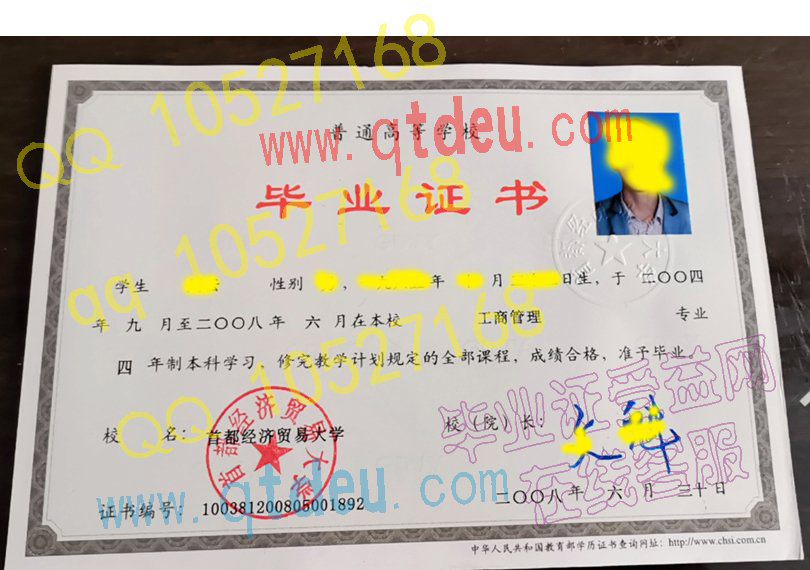 QQ 10527168
www.qtdeu.com
普通高等学校
毕业证书
qq 10527168
学生 性别 , 年 月 日生, 于 二〇〇四
年 九 月至二〇〇八年 六 月在本校 工商管理 专业
四 年制本科学习 修完教学计划规定的全部课程, 成绩合格, 准予毕业。
QQ 10527168
毕业证受益网
在线客服
校 名: 首都经济贸易大学
首都经济贸易大学
校(院)长:
www.qtdeu.com
证书编号: 100381200805001892
二〇〇八年 六 月 三十日
中华人民共和国教育部学历证书查询网址: http://www.chsi.com.cn